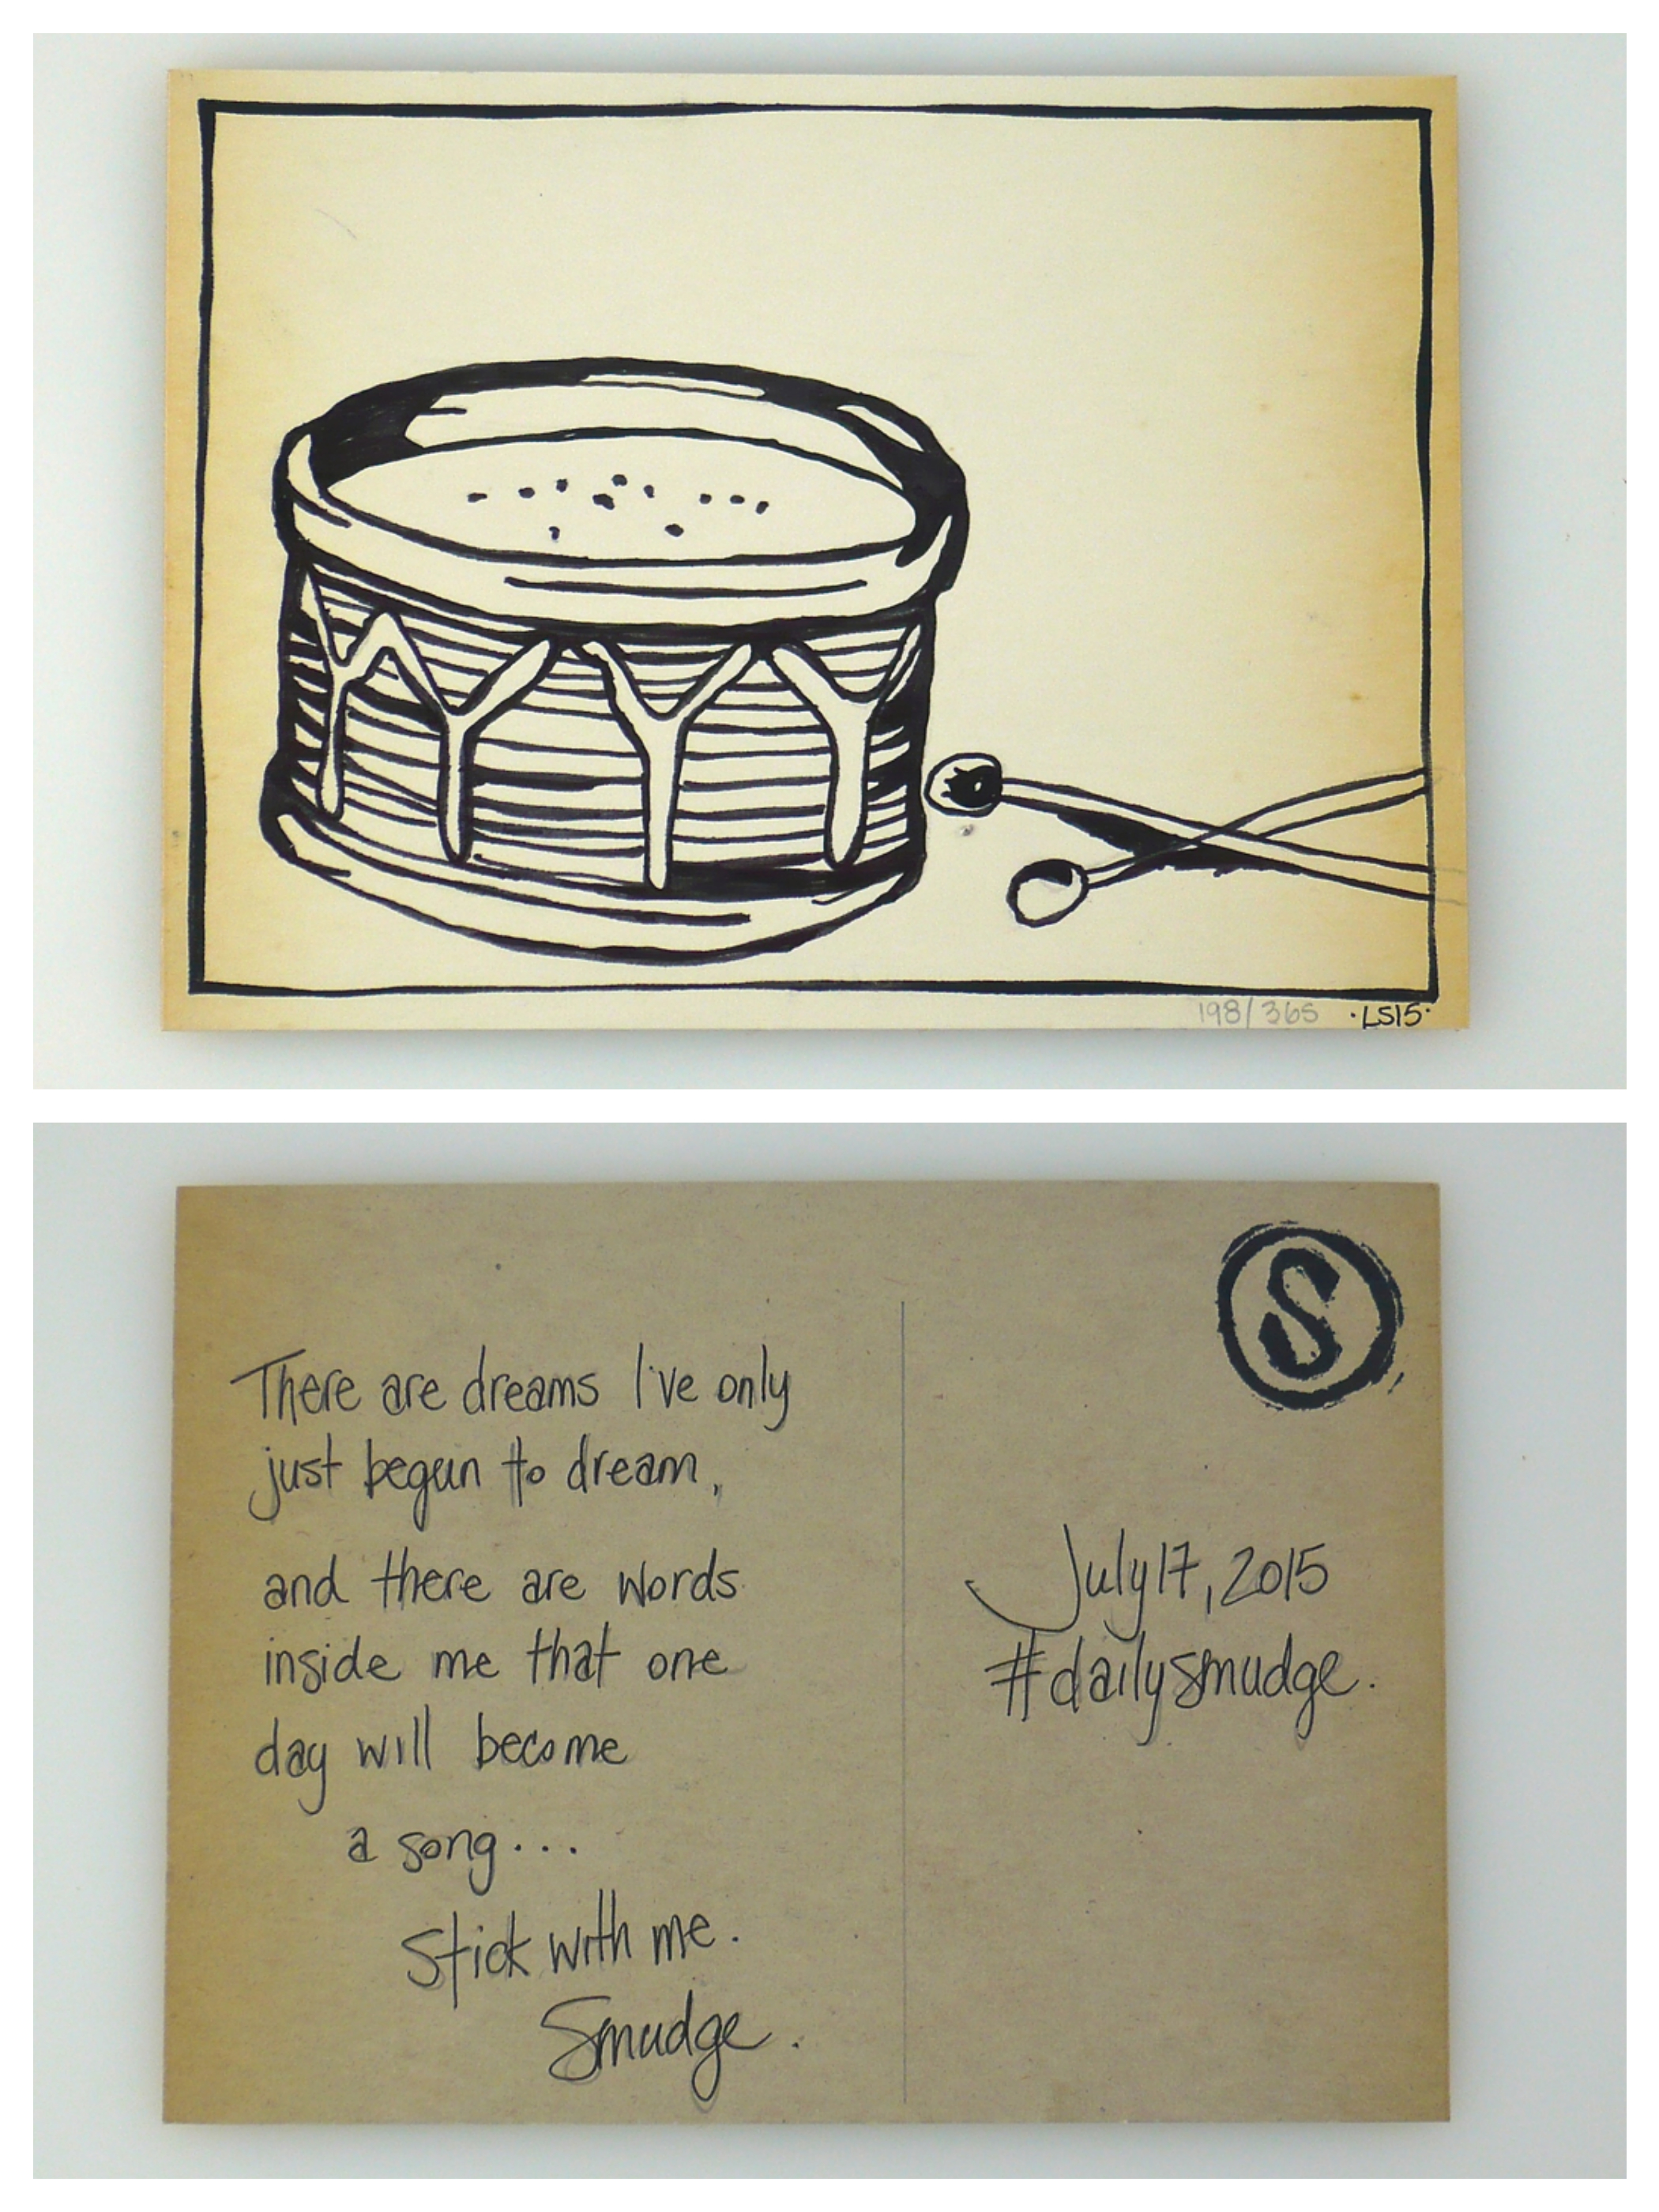 198/365 ·LS15·
S
There are dreams I've only
just begun to dream,
and there are words
inside me that one
day will become
a song...
Stick with me.
Smudge.
July 17, 2015
#dailysmudge.